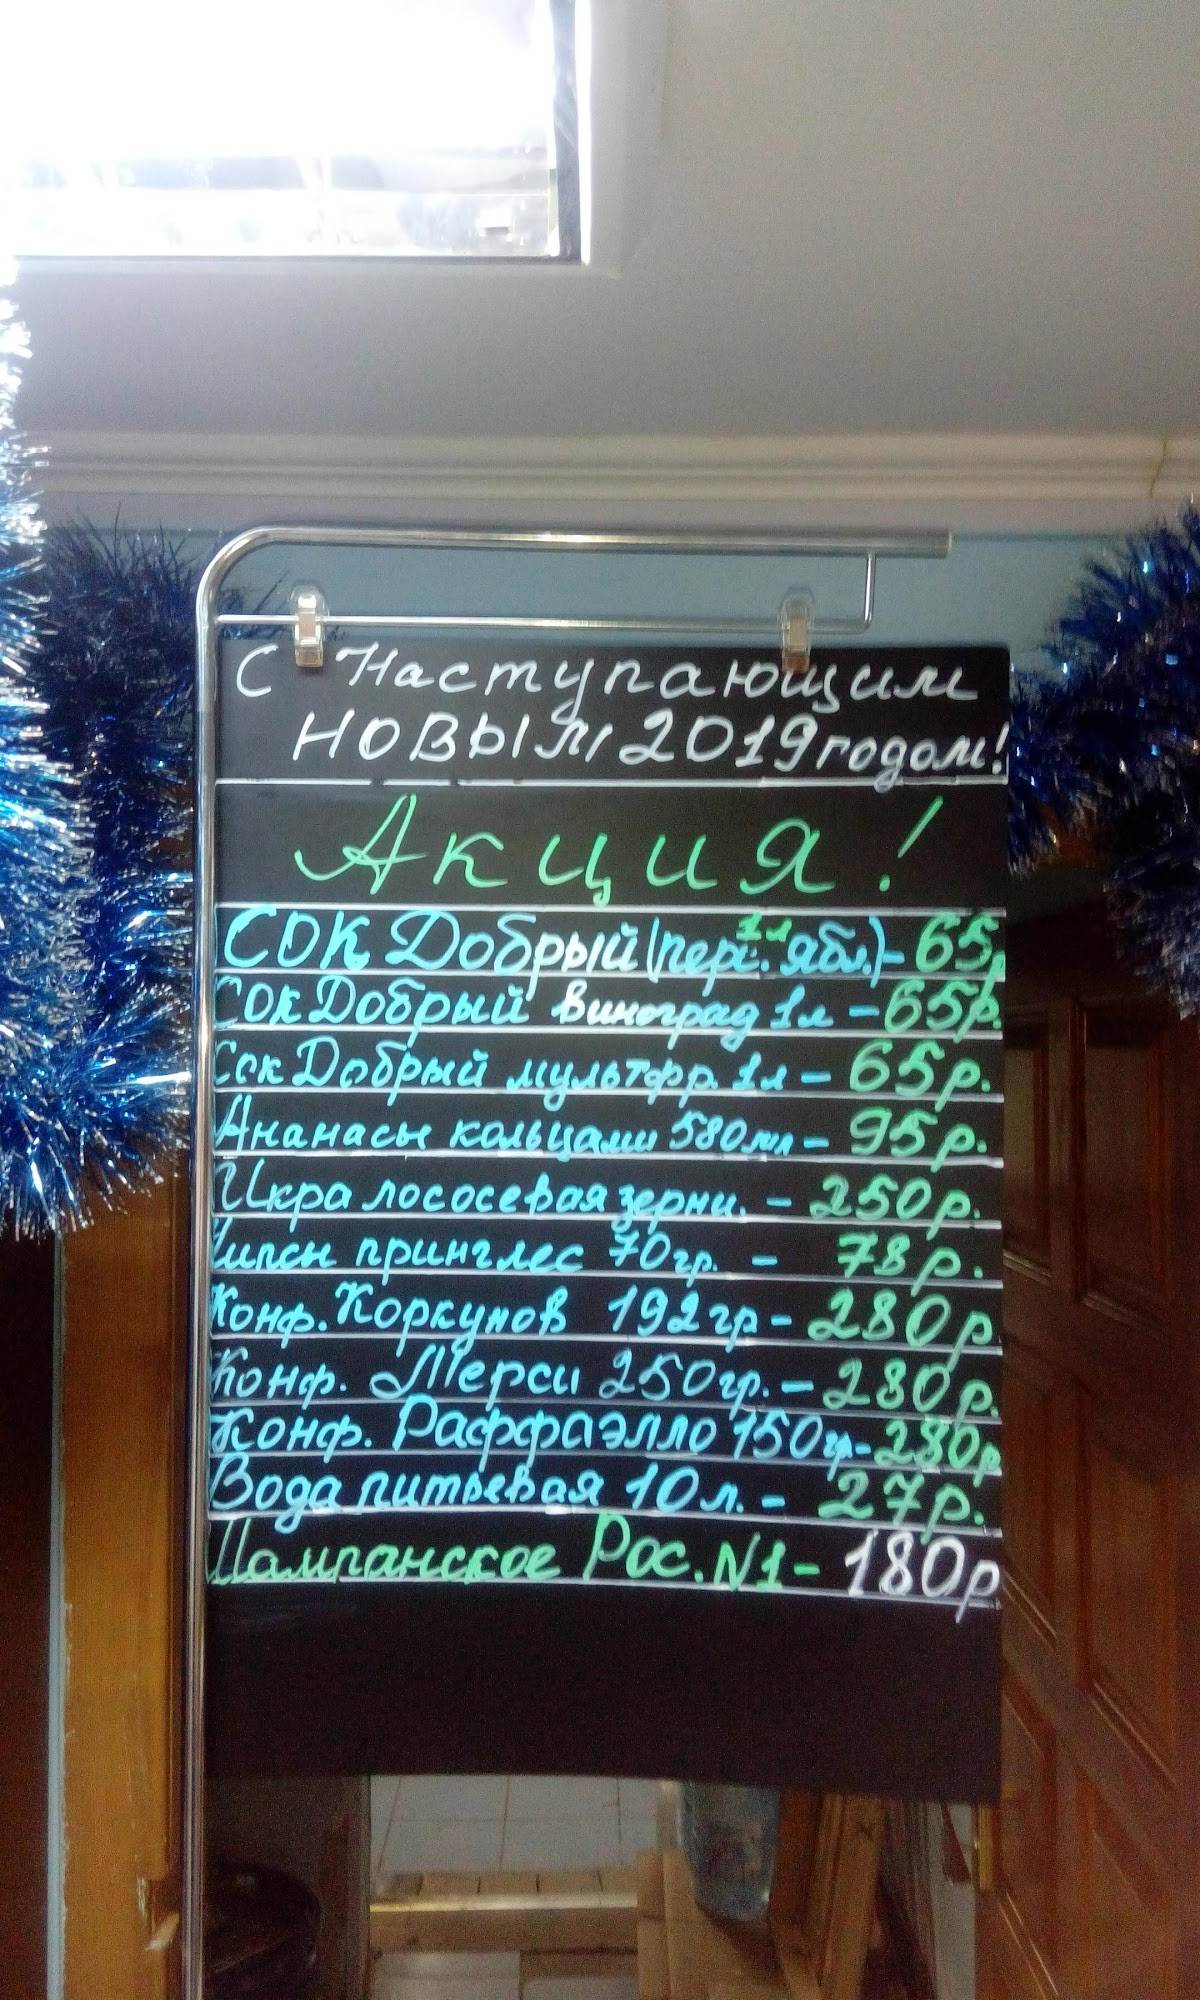 С Наступающим
НОВЫМ 2019 годом!
Акция!
Сок Добрый (перс. ябл.) 1л - 65р
Сок Добрый виноград 1л - 65р.
Сок Добрый мультфр. 1л - 65р.
Ананасы кольцами 580мл - 95р.
Икра лососевая зерни. - 250р.
Чипсы принглес 70гр. - 78р.
Конф. Коркунов 192гр - 280р.
Конф. Мерси 250гр. - 280р.
Конф. Раффаэлло 150гр - 280р
Вода питьевая 10л. - 27р.
Шампанское Рос. N1 - 180р